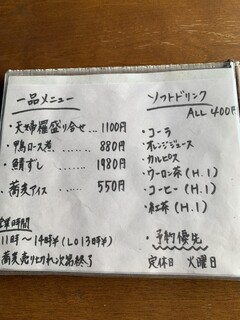 一品メニュー
・天婦羅盛り合せ…1100円
・鴨ロース煮……880円
・鯖すし……1980円
・蕎麦アイス…550円
営業時間
11時〜14時半(LO13時半)
蕎麦売り切れ次第終了
ソフトドリンク
ALL 400円
・コーラ
・オレンジジュース
・カルピス
・ウーロン茶(H.I)
・コーヒー(H.I)
・紅茶(H.I)
・予約優先
定休日 火曜日